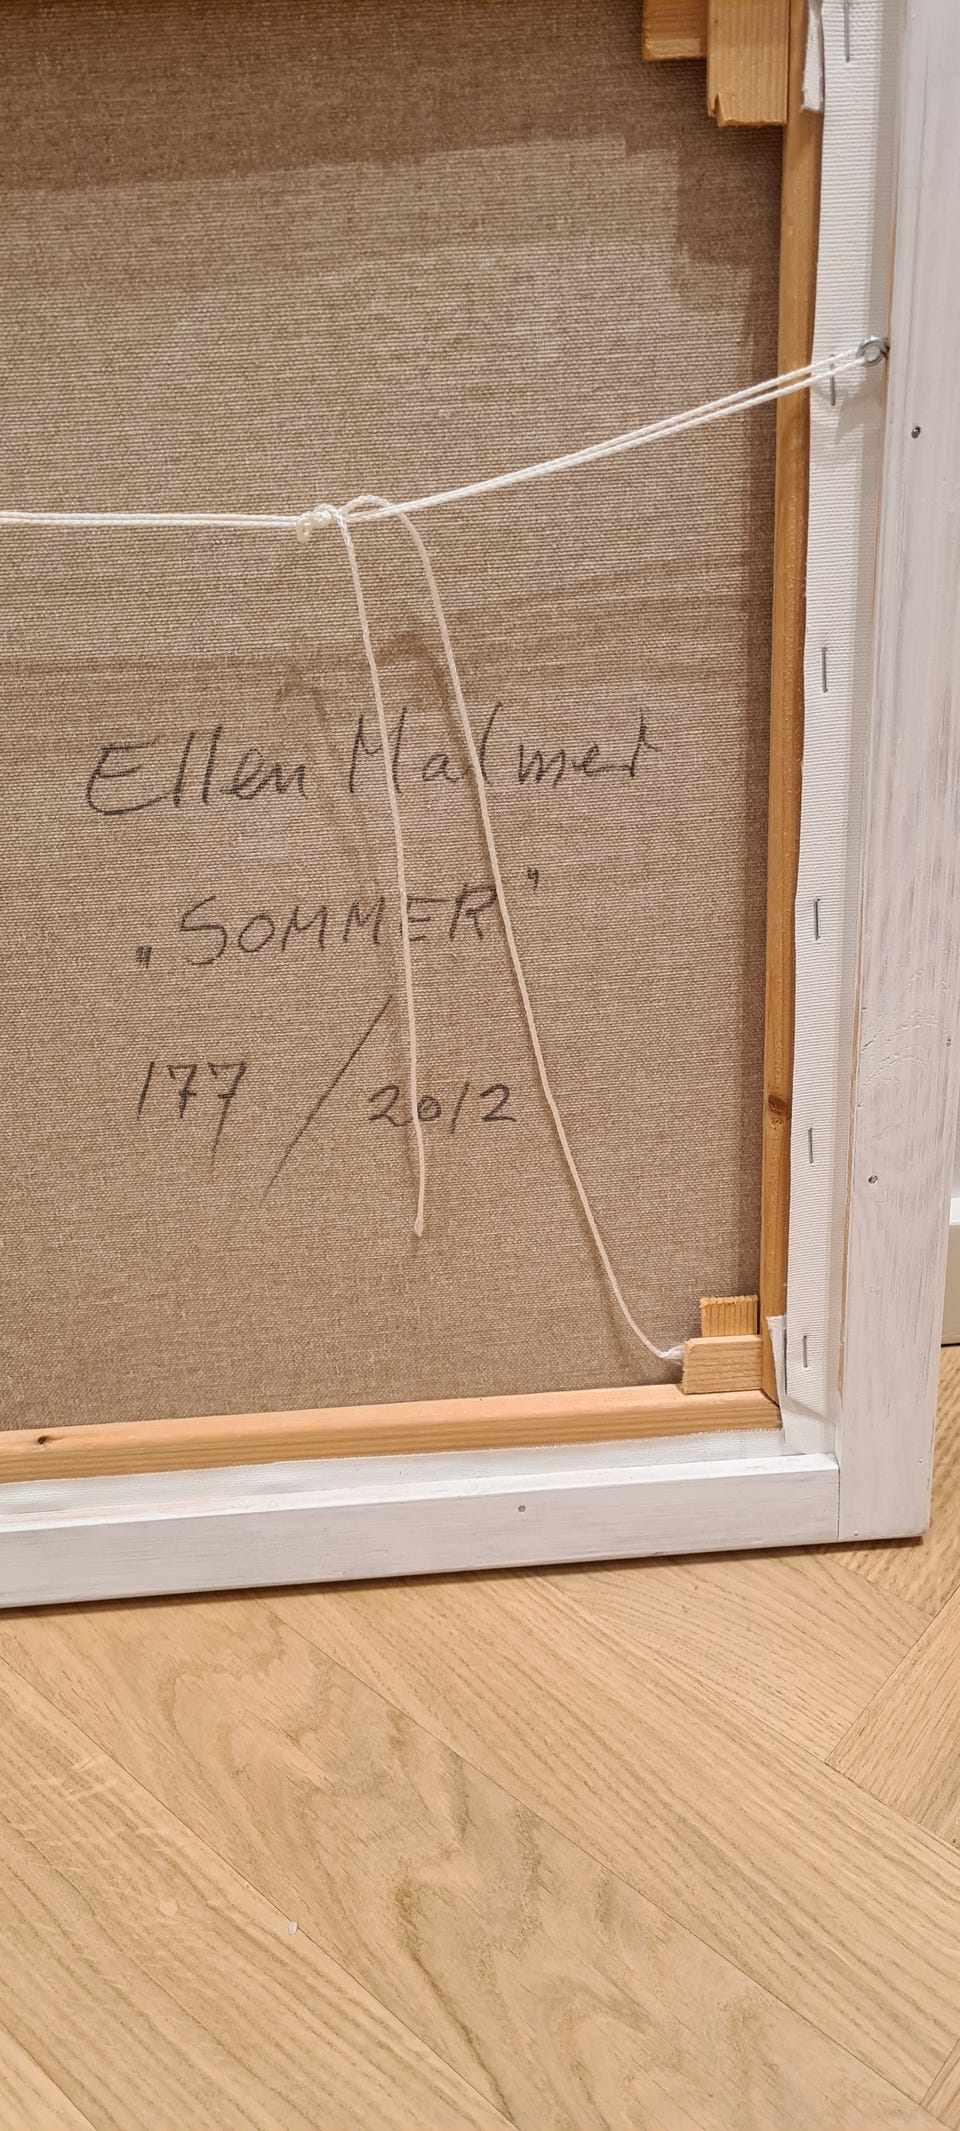 Ellen Malmer
„SOMMER"
177 / 2012